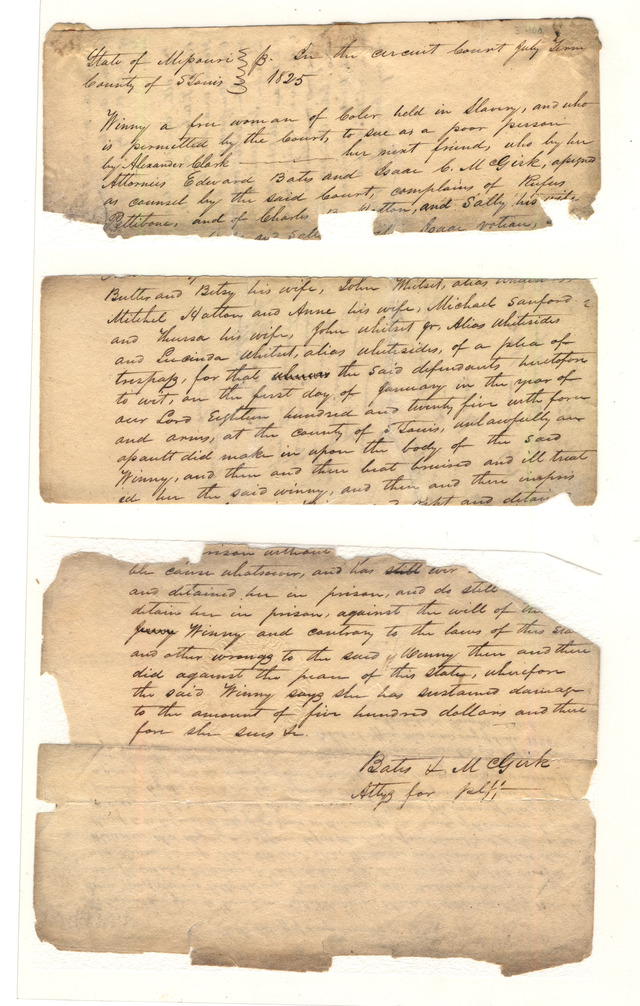 State of Missouri } ss. In the circuit Court July Term
County of St Louis } 1825
Winny a free woman of Coler held in Slavery, and who
is permitted by the Court, to sue as a poor person
by Alexander Clark her next friend, who by her
Attornies Edward Bates and Isaac C. McGirk, assigned
as counsel by the said Court, complains of Rufus
Pettibone, and of Charles Hatton, and Sally his wife
and Isaac votian,
Butler and Betsy his wife, John Whitset, alias
Mitchel Hatton and Anne his wife, Michael Sanford
and Thursa his wife, John whitset jr, Alias Whitesides
and Lucinda Whitset, alias whitesides, of a plea of
trespass, for that whereas the said defendants heretofore
to wit, on the first day of January in the year of
our Lord Eighteen hundred and twenty five with force
and arms, at the county of St Louis, unlawfully an
assault did make in upon the body of the said
Winny, and then and there beat bruised and ill treat
ed her the said winny, and then and there inpris
kept and detain
rison without
ble cause whatsoever, and has still ever
and detained her in prison, and do still
detain her in prison, against the will of the
Winny and contrary to the laws of this Sta
and other wrongs to the said Winny then and there
did against the peace of this state, wherefore
the said Winny says she has sustained damage
to the amount of five hundred dollars and there
fore she sues &c.
Bates & McGirk
Attys for Plff